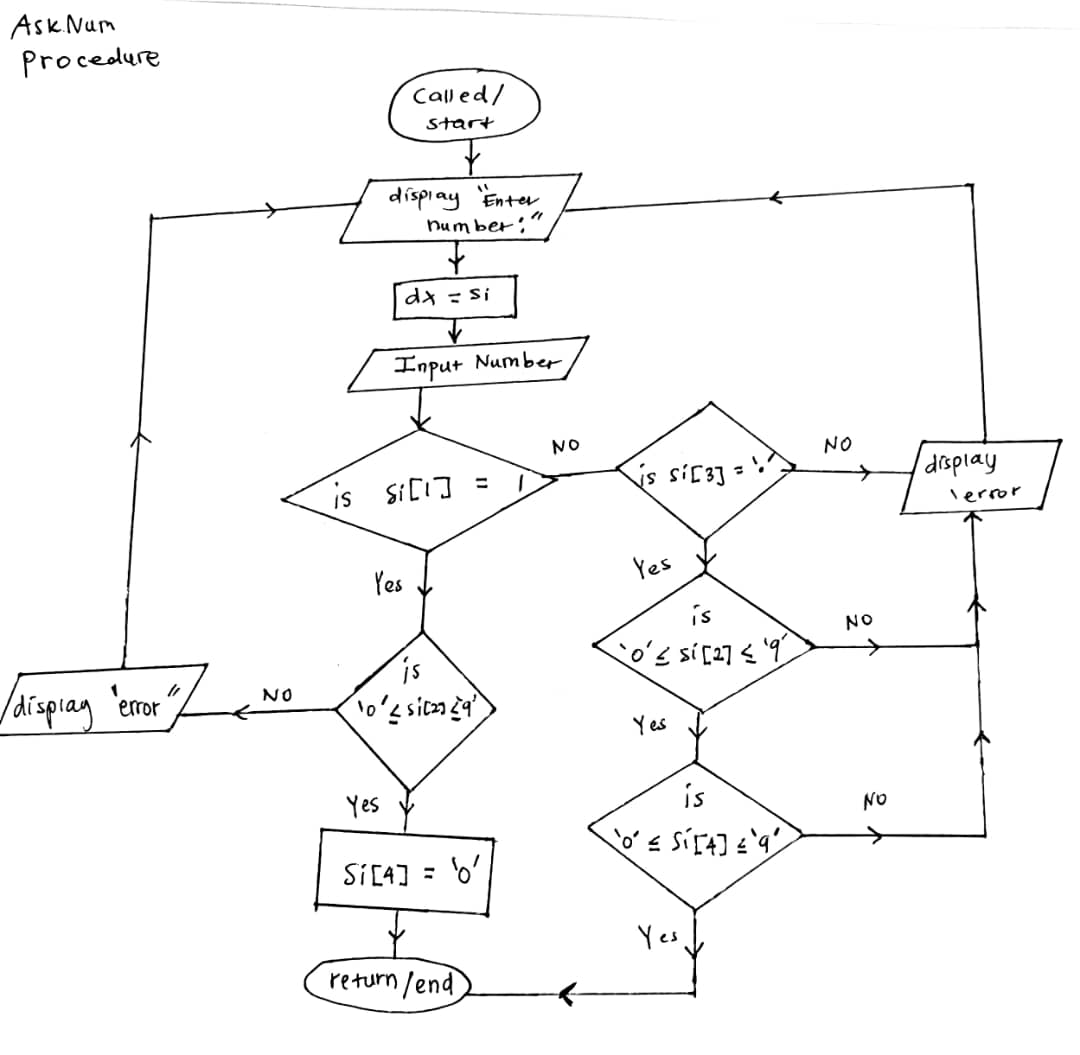 Ask.Num
Procedure
Called/
start
display "Enter
number:"
dx = si
Input Number
is si[1] = 1
NO
is si[3] = '.'
NO
display
'error
Yes
Yes
is
'0' ≤ si[2] ≤ '9'
NO
is
'0' ≤ si[2] ≤ '9'
NO
display 'error"
Yes
Yes
is
'0' ≤ si[4] ≤ '9'
NO
si[4] = '0'
Yes
return/end